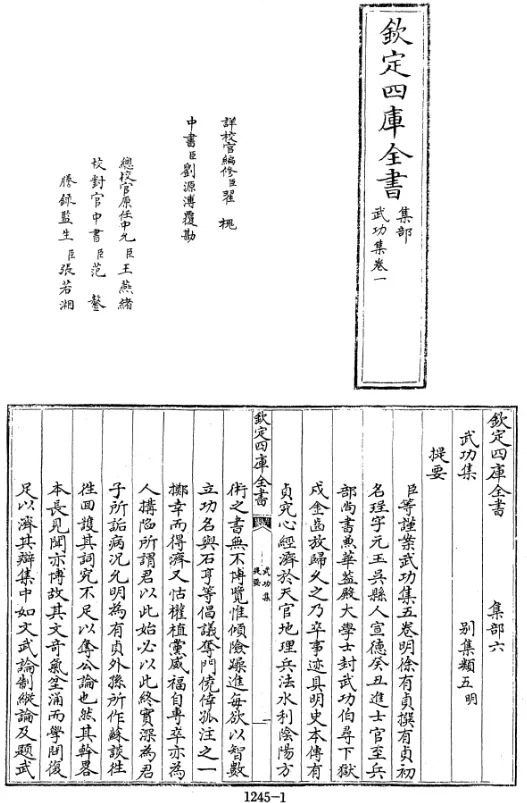 欽定四庫全書
集部
武功集卷一
詳校官編修臣翟槐
中書臣劉源溥覆勘
總校官原任中允臣王燕緒
校對官中書臣范鏊
謄錄監生臣張若湘
欽定四庫全書
集部六
武功集
別集類五明
提要
臣等謹案武功集五卷明徐有貞撰有貞初
名珵字元玉吳縣人宣德癸丑進士官至兵
部尚書兼華蓋殿大學士封武功伯尋下獄
戍金齒放歸久之乃卒事迹具明史本傳有
貞究心經濟於天官地理兵法水利陰陽方
欽定四庫全書
武功集
提要
一
術之書無不博覽惟傾險躁進每欲以智數
立功名與石亨等倡議奪門僥倖孤注之一
擲幸而得濟又怙權植黨威福自專卒亦為
人搆陷所謂君以此始必以此終實深為君
子所詬病况允明為有貞外孫所作蘇談往
徃回護其詞究不足以奪公論也然其幹畧
本長見聞亦博故其文奇氣坌涌而學問復
足以濟其辯集中如文武論制縱論及題武
1245-1